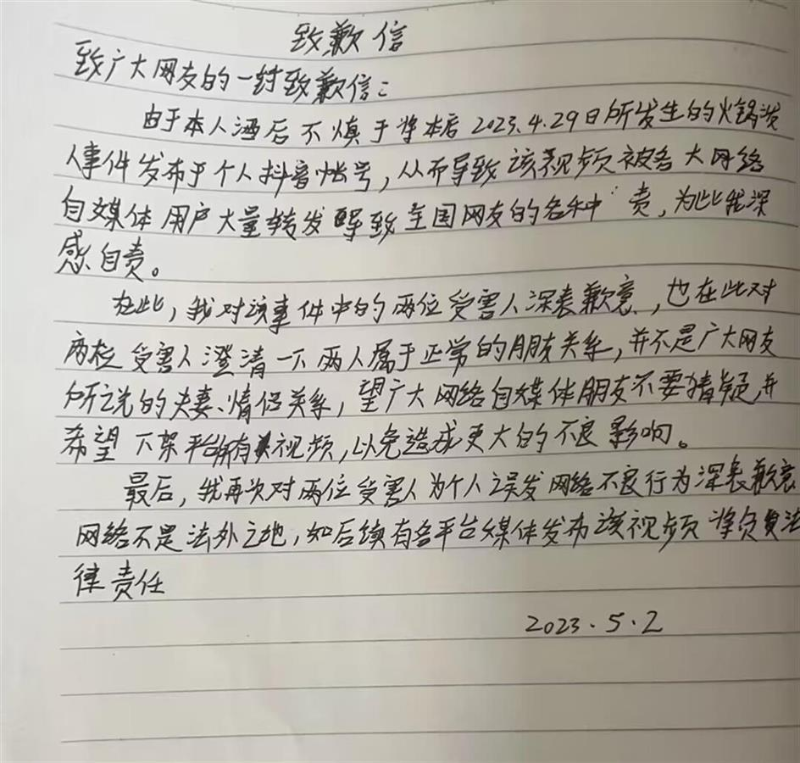 致歉信
致广大网友的一封致歉信：
由于本人酒后不慎于将本店2023.4.29日所发生的火锅泼
人事件发布于个人抖音帐号，从而导致该视频被各大网络
自媒体用户大量转发导致全国网友的各种 责，为此我深
感自责。
在此，我对该事件中的两位受害人深表歉意，也在此对
两位受害人澄清一下两人属于正常的朋友关系，并不是广大网友
所说的夫妻、情侣关系，望广大网络自媒体朋友不要猜疑，并
希望下架平台所有 视频，以免造成更大的不良影响。
最后，我再次对两位受害人为个人误发网络不良行为深表歉意
网络不是法外之地，如后续有各平台媒体发布该视频将负责法
律责任
2023.5.2